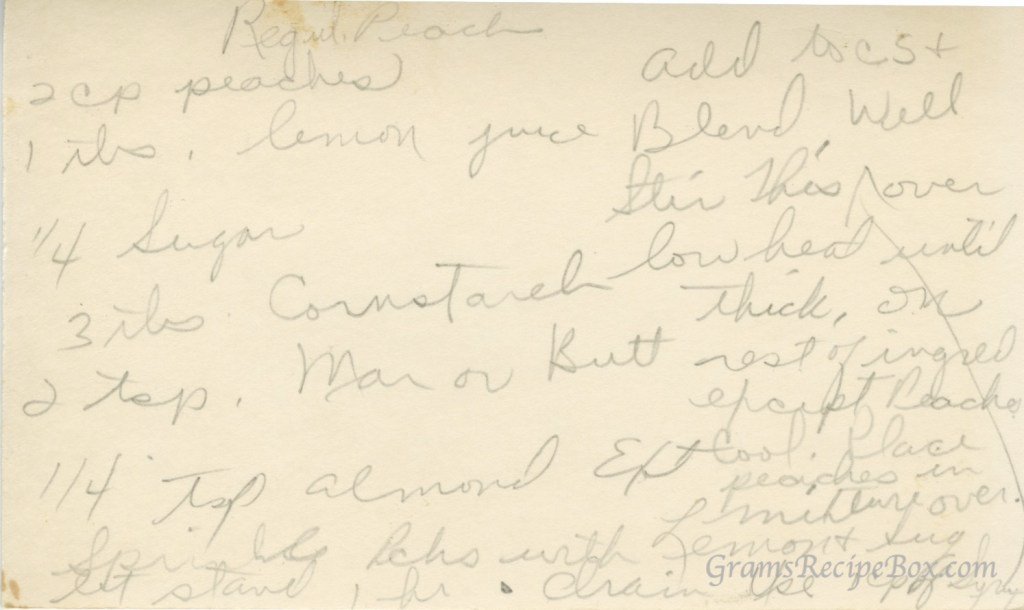 Regul. Peach
2 cp peaches
1 tbs. lemon juice
1/4 Sugar
3 tbs Cornstarch
2 tsp. Mar or Butt
1/4 tsp almond Ext
Sprinkle Pchs with Lemon + Sug
let stand 1 hr. drain
add to CS +
Blend Well
Stir this over
low heat until
thick, on
rest of ingred
except Peaches
Cool. Place
peaches in
mixture over.
GramsRecipeBox.com